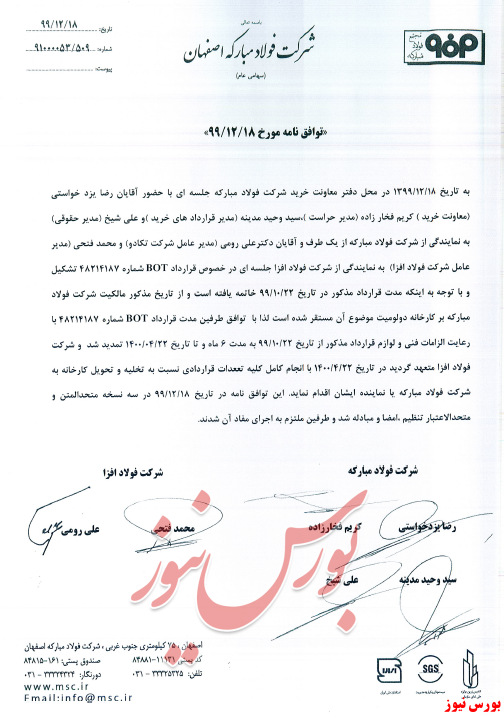 باسمه تعالی
تاریخ: ۹۹/۱۲/۱۸
شماره: ۹۱۰۰۰۰۵۳/۵۰۹
پیوست:
شرکت فولاد مبارکه اصفهان
(سهامی عام)
مجتمع فولاد مبارکه
«توافق نامه مورخ ۹۹/۱۲/۱۸»
به تاریخ ۱۳۹۹/۱۲/۱۸ در محل دفتر معاونت خرید شرکت فولاد مبارکه جلسه ای با حضور آقایان رضا یزد خواستی
(معاونت خرید ) کریم فخار زاده (مدیر حراست )،سید وحید مدینه (مدیر قرارداد های خرید )و علی شیخ (مدیر حقوقی)
به نمایندگی از شرکت فولاد مبارکه از یک طرف و آقایان دکترعلی رومی (مدیر عامل شرکت تکادو) و محمد فتحی (مدیر
عامل شرکت فولاد افزا) به نمایندگی از شرکت فولاد افزا جلسه ای در خصوص قرارداد BOT شماره ۴۸۲۱۴۱۸۷ تشکیل
و با توجه به اینکه مدت قرارداد مذکور در تاریخ ۹۹/۱۰/۲۲ خاتمه یافته است و از تاریخ مذکور مالکیت شرکت فولاد
مبارکه بر کارخانه دولومیت موضوع آن مستقر شده است لذا با توافق طرفین مدت قرارداد BOT شماره ۴۸۲۱۴۱۸۷ با
رعایت الزامات فنی و لوازم قرارداد مذکور از تاریخ ۹۹/۱۰/۲۲ به مدت ۶ ماه و تا تاریخ ۱۴۰۰/۰۴/۲۲ تمدید شد و شرکت
فولاد افزا متعهد گردید در تاریخ ۱۴۰۰/۴/۲۲ با انجام کامل کلیه تعهدات قراردادی نسبت به تخلیه و تحویل کارخانه به
شرکت فولاد مبارکه یا نماینده ایشان اقدام نماید. این توافق نامه در تاریخ ۹۹/۱۲/۱۸ در سه نسخه متحدالمتن و
متحدالاعتبار تنظیم ،امضا و مبادله شد و طرفین ملتزم به اجرای مفاد آن شدند.
شرکت فولاد مبارکه
شرکت فولاد افزا
رضا یزدخواستی
کریم فخارزاده
محمد فتحی
علی رومی
سید وحید مدینه
علی شیخ
بورس نیوز
اصفهان ، ۷۵ کیلومتری جنوب غربی ، شرکت فولاد مبارکه اصفهان
کد پستی: ۱۱۱۳۱-۸۴۸۸۱
صندوق پستی: ۱۶۱-۸۴۸۱۵
تلفن: ۳۳۳۲۴۳۲۵ - ۰۳۱
دورنگار: ۳۳۳۲۴۳۲۴ - ۰۳۱
www.msc.ir
Email:info@msc.ir
SGS
بورس نیوز